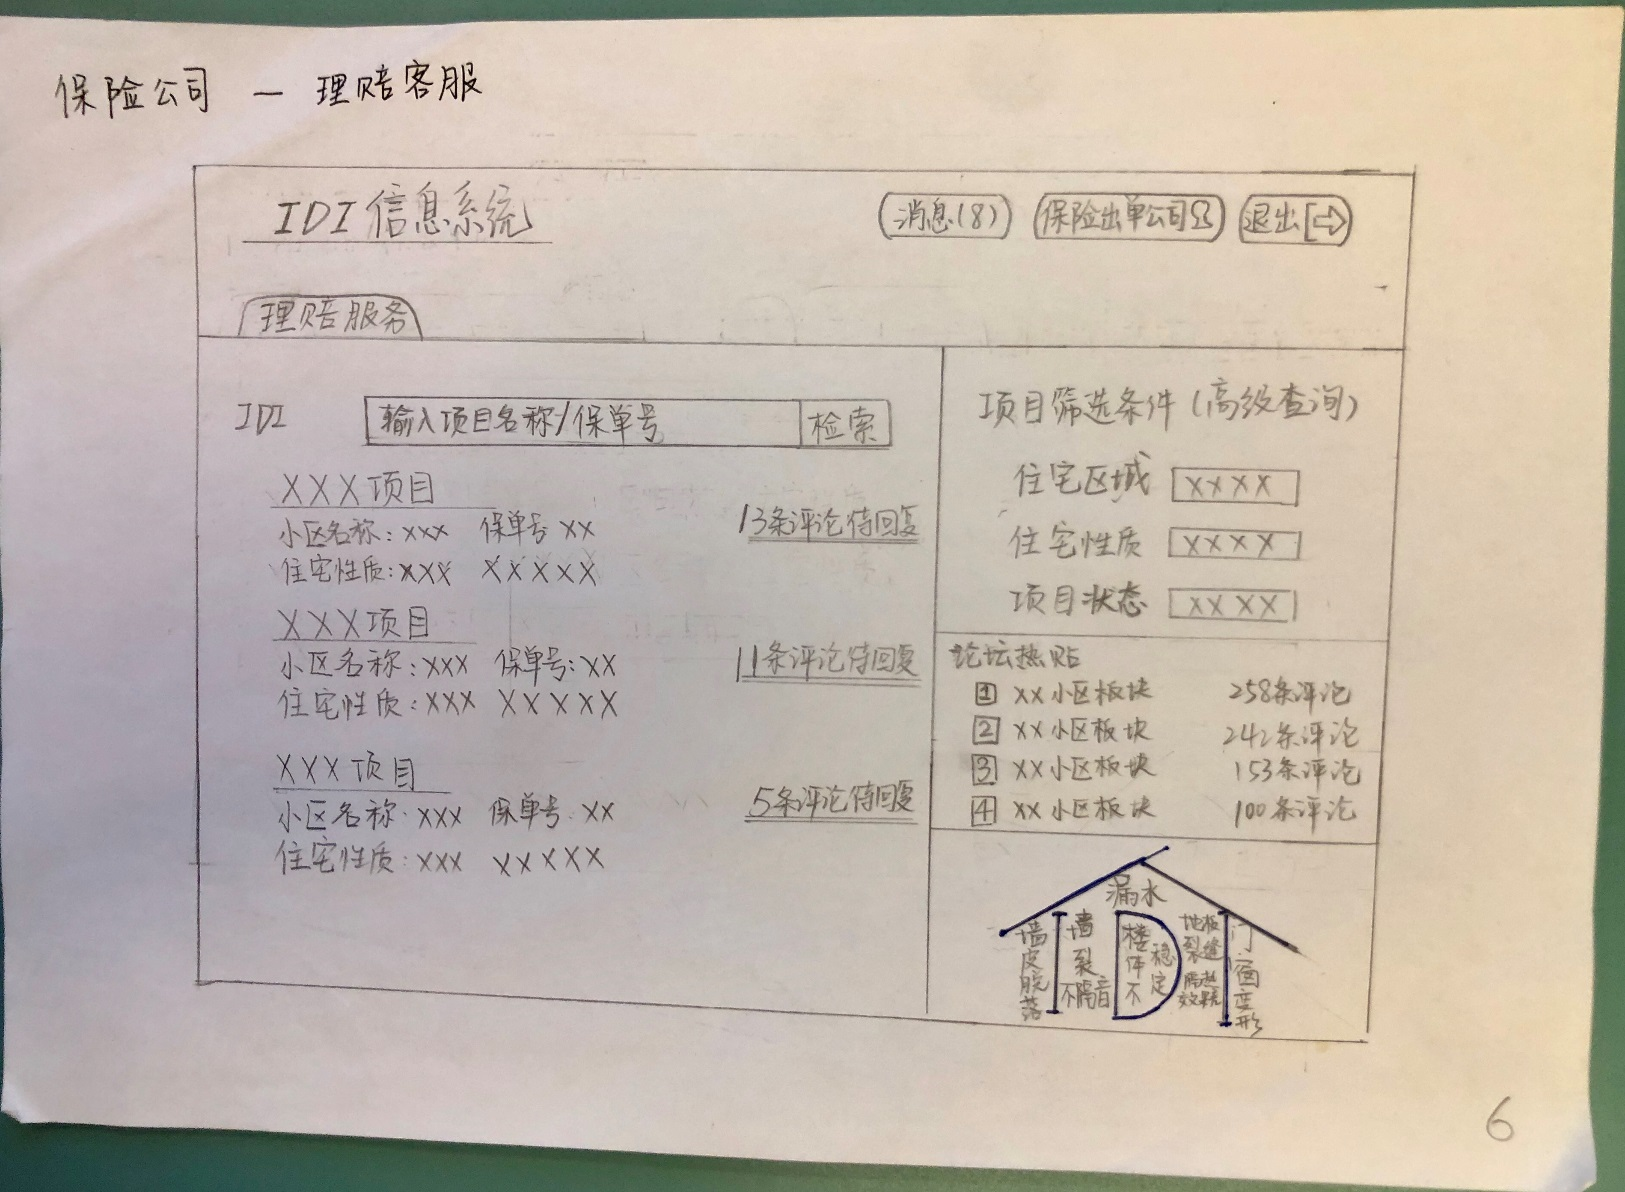 保险公司 — 理赔客服
IDI信息系统
消息(8)
保险出单公司
退出
理赔服务
IDI
输入项目名称/保单号
检索
XXX项目
小区名称:xxx 保单号 xx
13条评论待回复
住宅性质:xxx XXXXX
XXX项目
小区名称:xxx 保单号:xx
11条评论待回复
住宅性质:xxx XXXXX
XXX项目
小区名称:xxx 保单号:xx
5条评论待回复
住宅性质:xxx XXXXX
项目筛选条件(高级查询)
住宅区域 XXXX
住宅性质 XXXX
项目状态 XXXX
论坛热贴
1 XX小区板块 258条评论
2 XX小区板块 242条评论
3 XX小区板块 153条评论
4 XX小区板块 100条评论
漏水
IDI
墙皮脱落
墙裂不隔音
楼体不稳定
地板裂缝
门窗变形
6